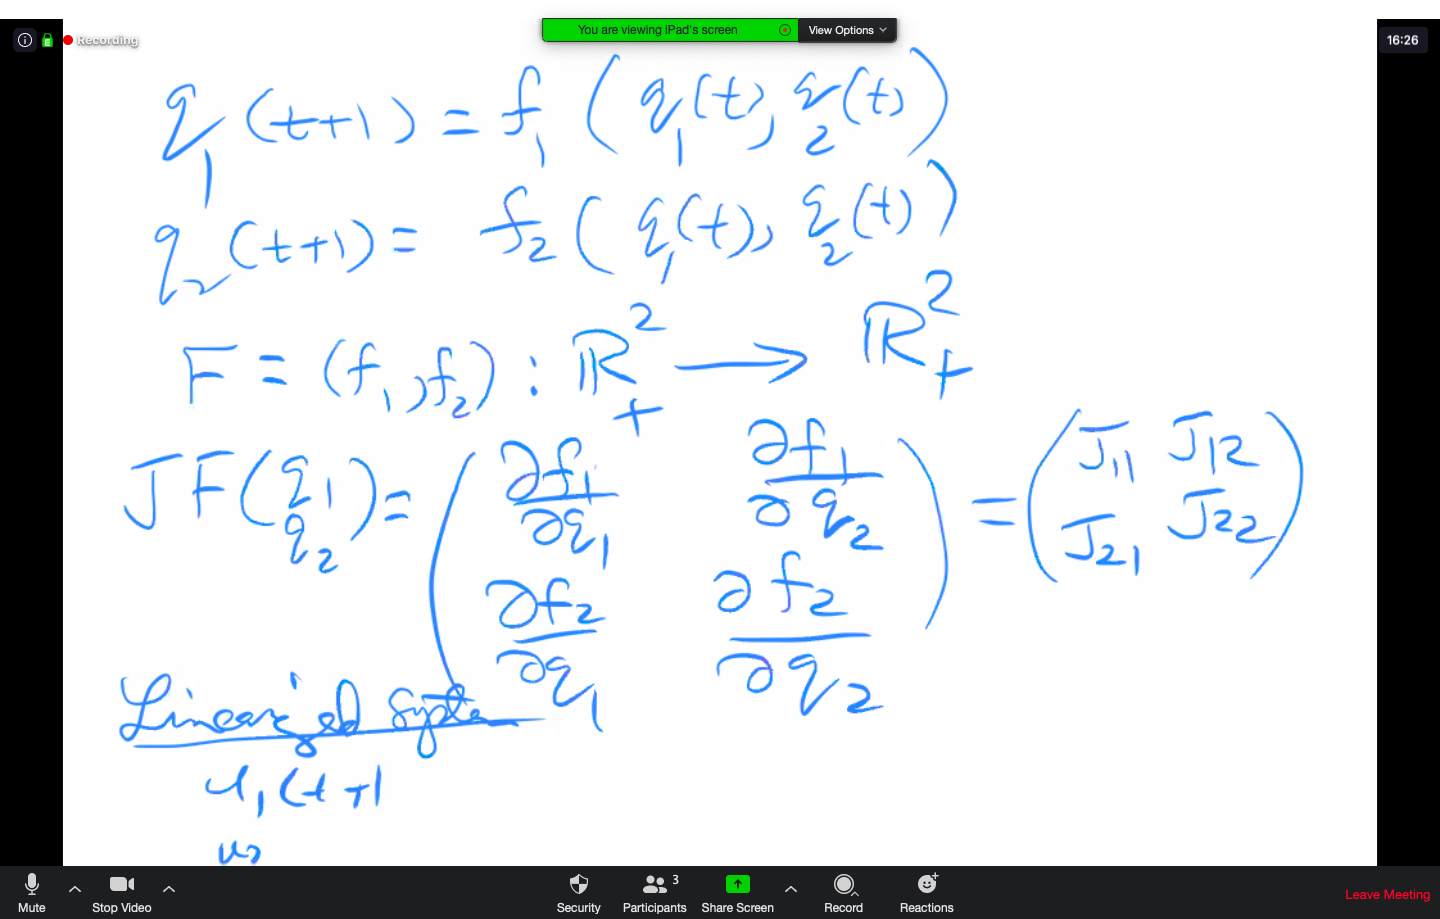 Recording
You are viewing iPad's screen
View Options
16:26
q₁(t+1) = f₁(q₁(t), q₂(t))
q₂(t+1) = f₂(q₁(t), q₂(t))
F = (f₁, f₂) : ℝ²₊ ⟶ ℝ²₊
JF(q₁ q₂) = (∂f₁/∂q₁ ∂f₁/∂q₂ ∂f₂/∂q₁ ∂f₂/∂q₂) = (J₁₁ J₁₂ J₂₁ J₂₂)
Linearized System
u₁(t+1
Mute
Stop Video
Security
Participants 3
Share Screen
Record
Reactions
Leave Meeting